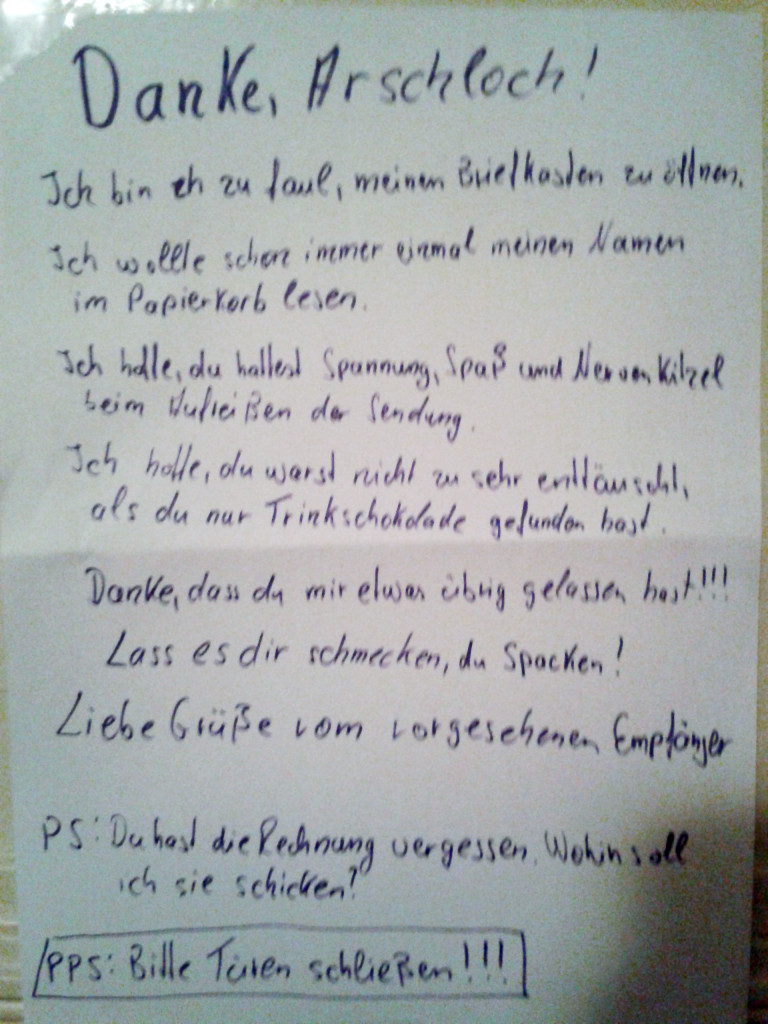 Danke, Arschloch!
Ich bin eh zu faul, meinen Briefkasten zu öffnen.
Ich wollte schon immer einmal meinen Namen
im Papierkorb lesen.
Ich hoffe, du hattest Spannung, Spaß und Nervenkitzel
beim Aufreißen der Sendung.
Ich hoffe, du warst nicht zu sehr enttäuscht,
als du nur Trinkschokolade gefunden hast.
Danke, dass du mir etwas übrig gelassen hast!!!
Lass es dir schmecken, du Spacken!
Liebe Grüße vom vorgesehenen Empfänger
PS: Du hast die Rechnung vergessen. Wohin soll
ich sie schicken?
PPS: Bitte Türen schließen!!!